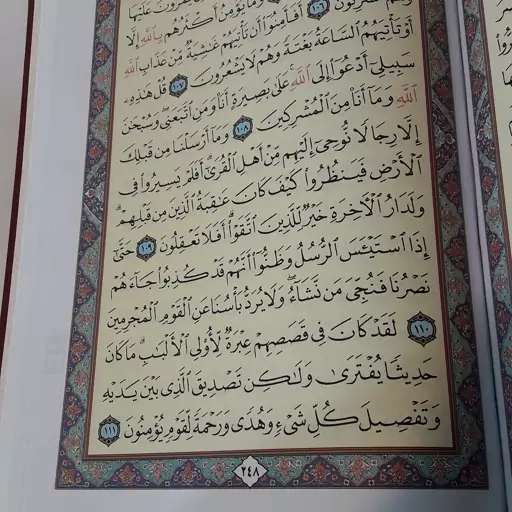 وَهُم مُّشْرِكُونَ ١٠٦
يَمُرُّونَ عَلَيْهَا
وَمَا يُؤْمِنُ أَكْثَرُهُم بِٱللَّهِ إِلَّا
أَفَأَمِنُوٓا۟ أَن تَأْتِيَهُمْ غَٰشِيَةٌ مِّنْ عَذَابِ ٱللَّهِ
أَوْ تَأْتِيَهُمُ ٱلسَّاعَةُ بَغْتَةً وَهُمْ لَا يَشْعُرُونَ ١٠٧ قُلْ هَٰذِهِۦ
سَبِيلِىٓ أَدْعُوٓا۟ إِلَى ٱللَّهِ عَلَىٰ بَصِيرَةٍ أَنَا۠ وَمَنِ ٱتَّبَعَنِى وَسُبْحَٰنَ
ٱللَّهِ وَمَآ أَنَا۠ مِنَ ٱلْمُشْرِكِينَ ١٠٨ وَمَآ أَرْسَلْنَا مِن قَبْلِكَ
إِلَّا رِجَالًا نُّوحِىٓ إِلَيْهِم مِّنْ أَهْلِ ٱلْقُرَىٰٓ أَفَلَمْ يَسِيرُوا۟ فِى
ٱلْأَرْضِ فَيَنظُرُوا۟ كَيْفَ كَانَ عَٰقِبَةُ ٱلَّذِينَ مِن قَبْلِهِمْ
وَلَدَارُ ٱلْءَاخِرَةِ خَيْرٌ لِّلَّذِينَ ٱتَّقَوْا۟ أَفَلَا تَعْقِلُونَ ١٠٩ حَتَّىٰٓ
إِذَا ٱسْتَيْـَٔسَ ٱلرُّسُلُ وَظَنُّوٓا۟ أَنَّهُمْ قَدْ كُذِبُوا۟ جَآءَهُمْ
نَصْرُنَا فَنُجِّىَ مَن نَّشَآءُ وَلَا يُرَدُّ بَأْسُنَا عَنِ ٱلْقَوْمِ ٱلْمُجْرِمِينَ
١١٠ لَقَدْ كَانَ فِى قَصَصِهِمْ عِبْرَةٌ لِّأُو۟لِى ٱلْأَلْبَٰبِ مَا كَانَ
حَدِيثًا يُفْتَرَىٰ وَلَٰكِن تَصْدِيقَ ٱلَّذِى بَيْنَ يَدَيْهِ
وَتَفْصِيلَ كُلِّ شَىْءٍ وَهُدًى وَرَحْمَةً لِّقَوْمٍ يُؤْمِنُونَ ١١١
٢٤٨